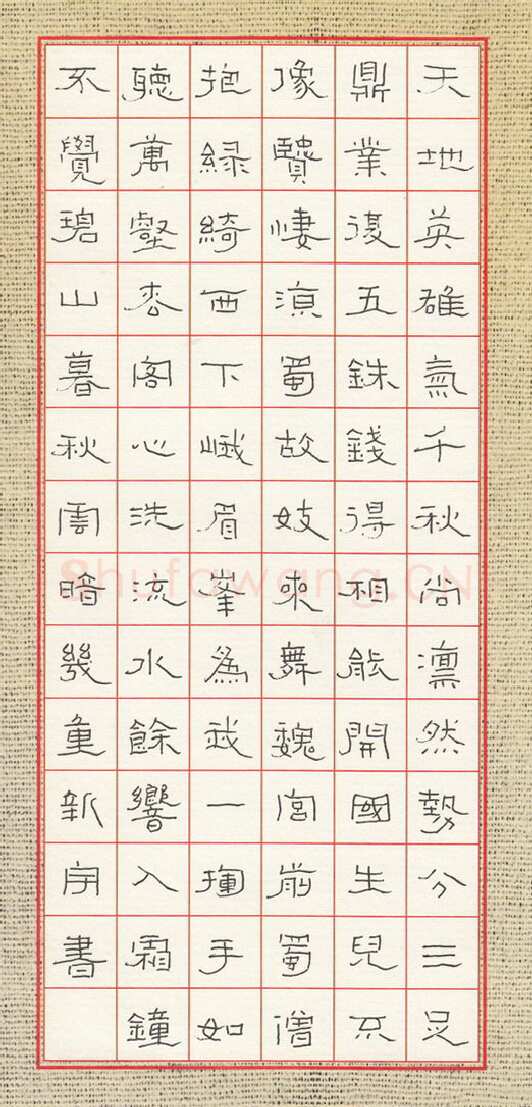 天地英雄氣千秋尚凜然勢分三足
鼎業復五銖錢得相能開國生兒不
像賢悽涼蜀故妓來舞魏宮前蜀僧
抱緑綺西下峨眉峯為我一揮手如
聽萬壑松客心洗流水餘響入霜鐘
不覺碧山暮秋雲暗幾重新宇書
Shufawang.CN